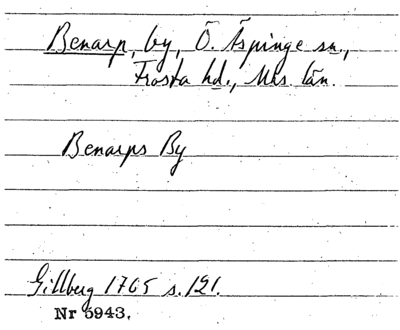 Benarp, by, Ö. Äspinge sn.,
Frosta hd., Mls. län.
Benarps By
Gillberg 1765 s. 121.
Nr 5943.